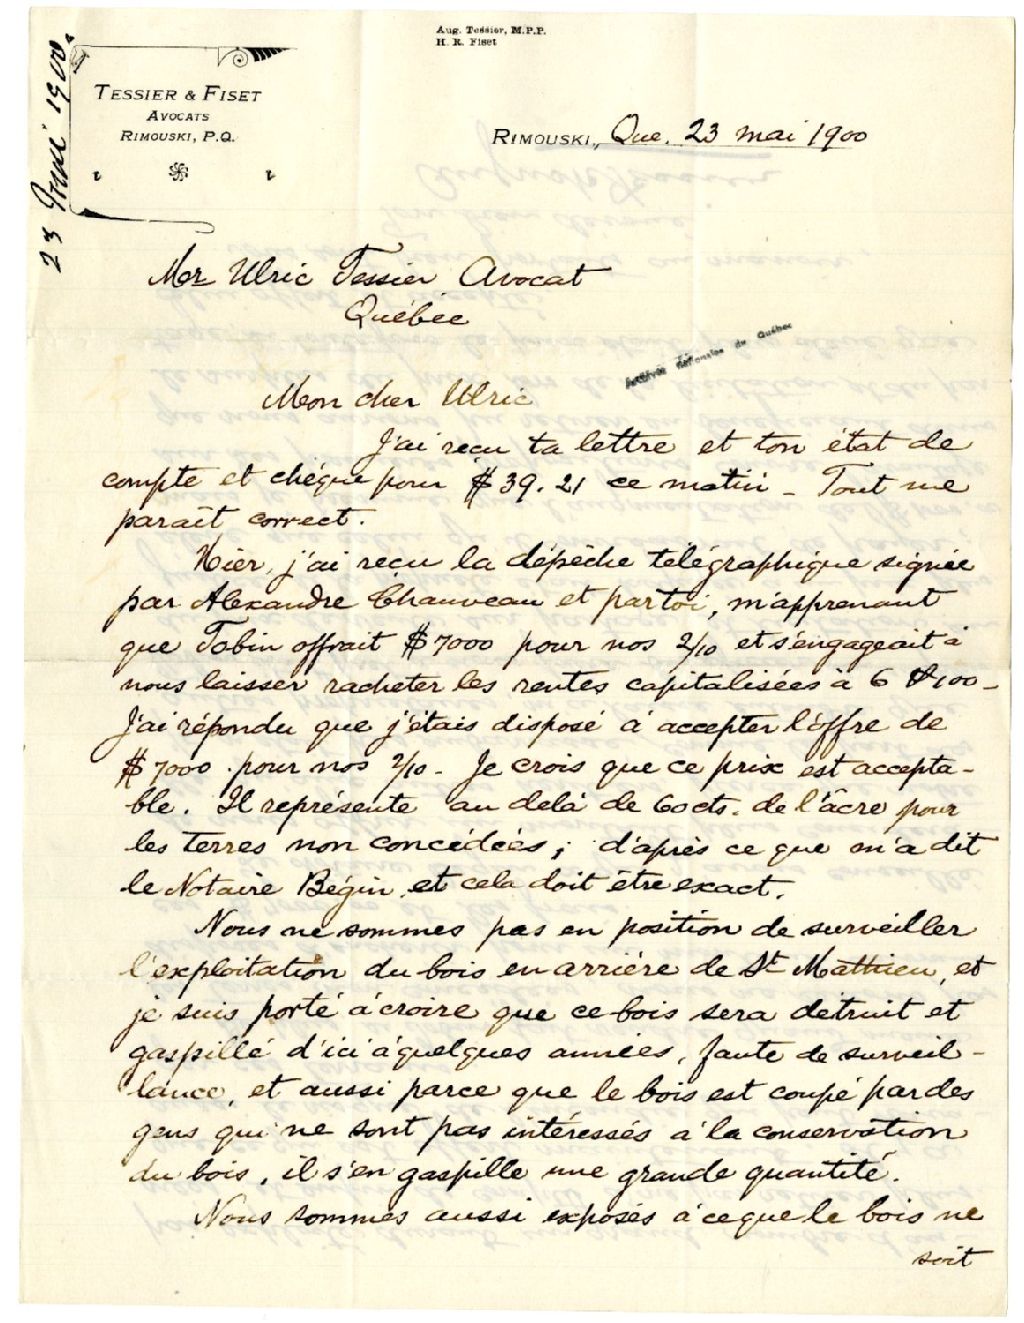 Aug. Tessier, M.P.P.
H. R. Fiset
23 mai 1900.
TESSIER & FISET
AVOCATS
RIMOUSKI, P.Q.
RIMOUSKI, Que. 23 mai 1900
Mer Ulric Tessier Avocat
Québec
Archives Nationales du Québec
Mon cher Ulric
J'ai reçu ta lettre et ton état de
compte et chèque pour $39.21 ce matin - Tout me
parait correct.
Hier, j'ai reçu la dépêche télégraphique signée
par Alexandre Chauveau et par toi, m'apprenant
que Tobin offrait $7000 pour nos 2/10 et s'engageait à
nous laisser racheter les rentes capitalisées à 6
J'ai répondu que j'étais disposé à accepter l'offre de
$7000 pour nos 2/10 - Je crois que ce prix est accepta-
ble. Il représente au delà de 60 cts. de l'âcre pour
les terres non concédées; d'après ce que m'a dit
le Notaire Bégin, et cela doit être exact.
Nous ne sommes pas en position de surveiller
l'exploitation du bois en arrière de St Mathieu, et
je suis porté à croire que ce bois sera détruit et
gaspillé d'ici à quelques années, faute de surveil-
lance, et aussi parce que le bois est coupé par des
gens qui ne sont pas intéressés à la conservation
du bois, il s'en gaspille une grande quantité.
Nous sommes aussi exposés à ce que le bois ne
soit